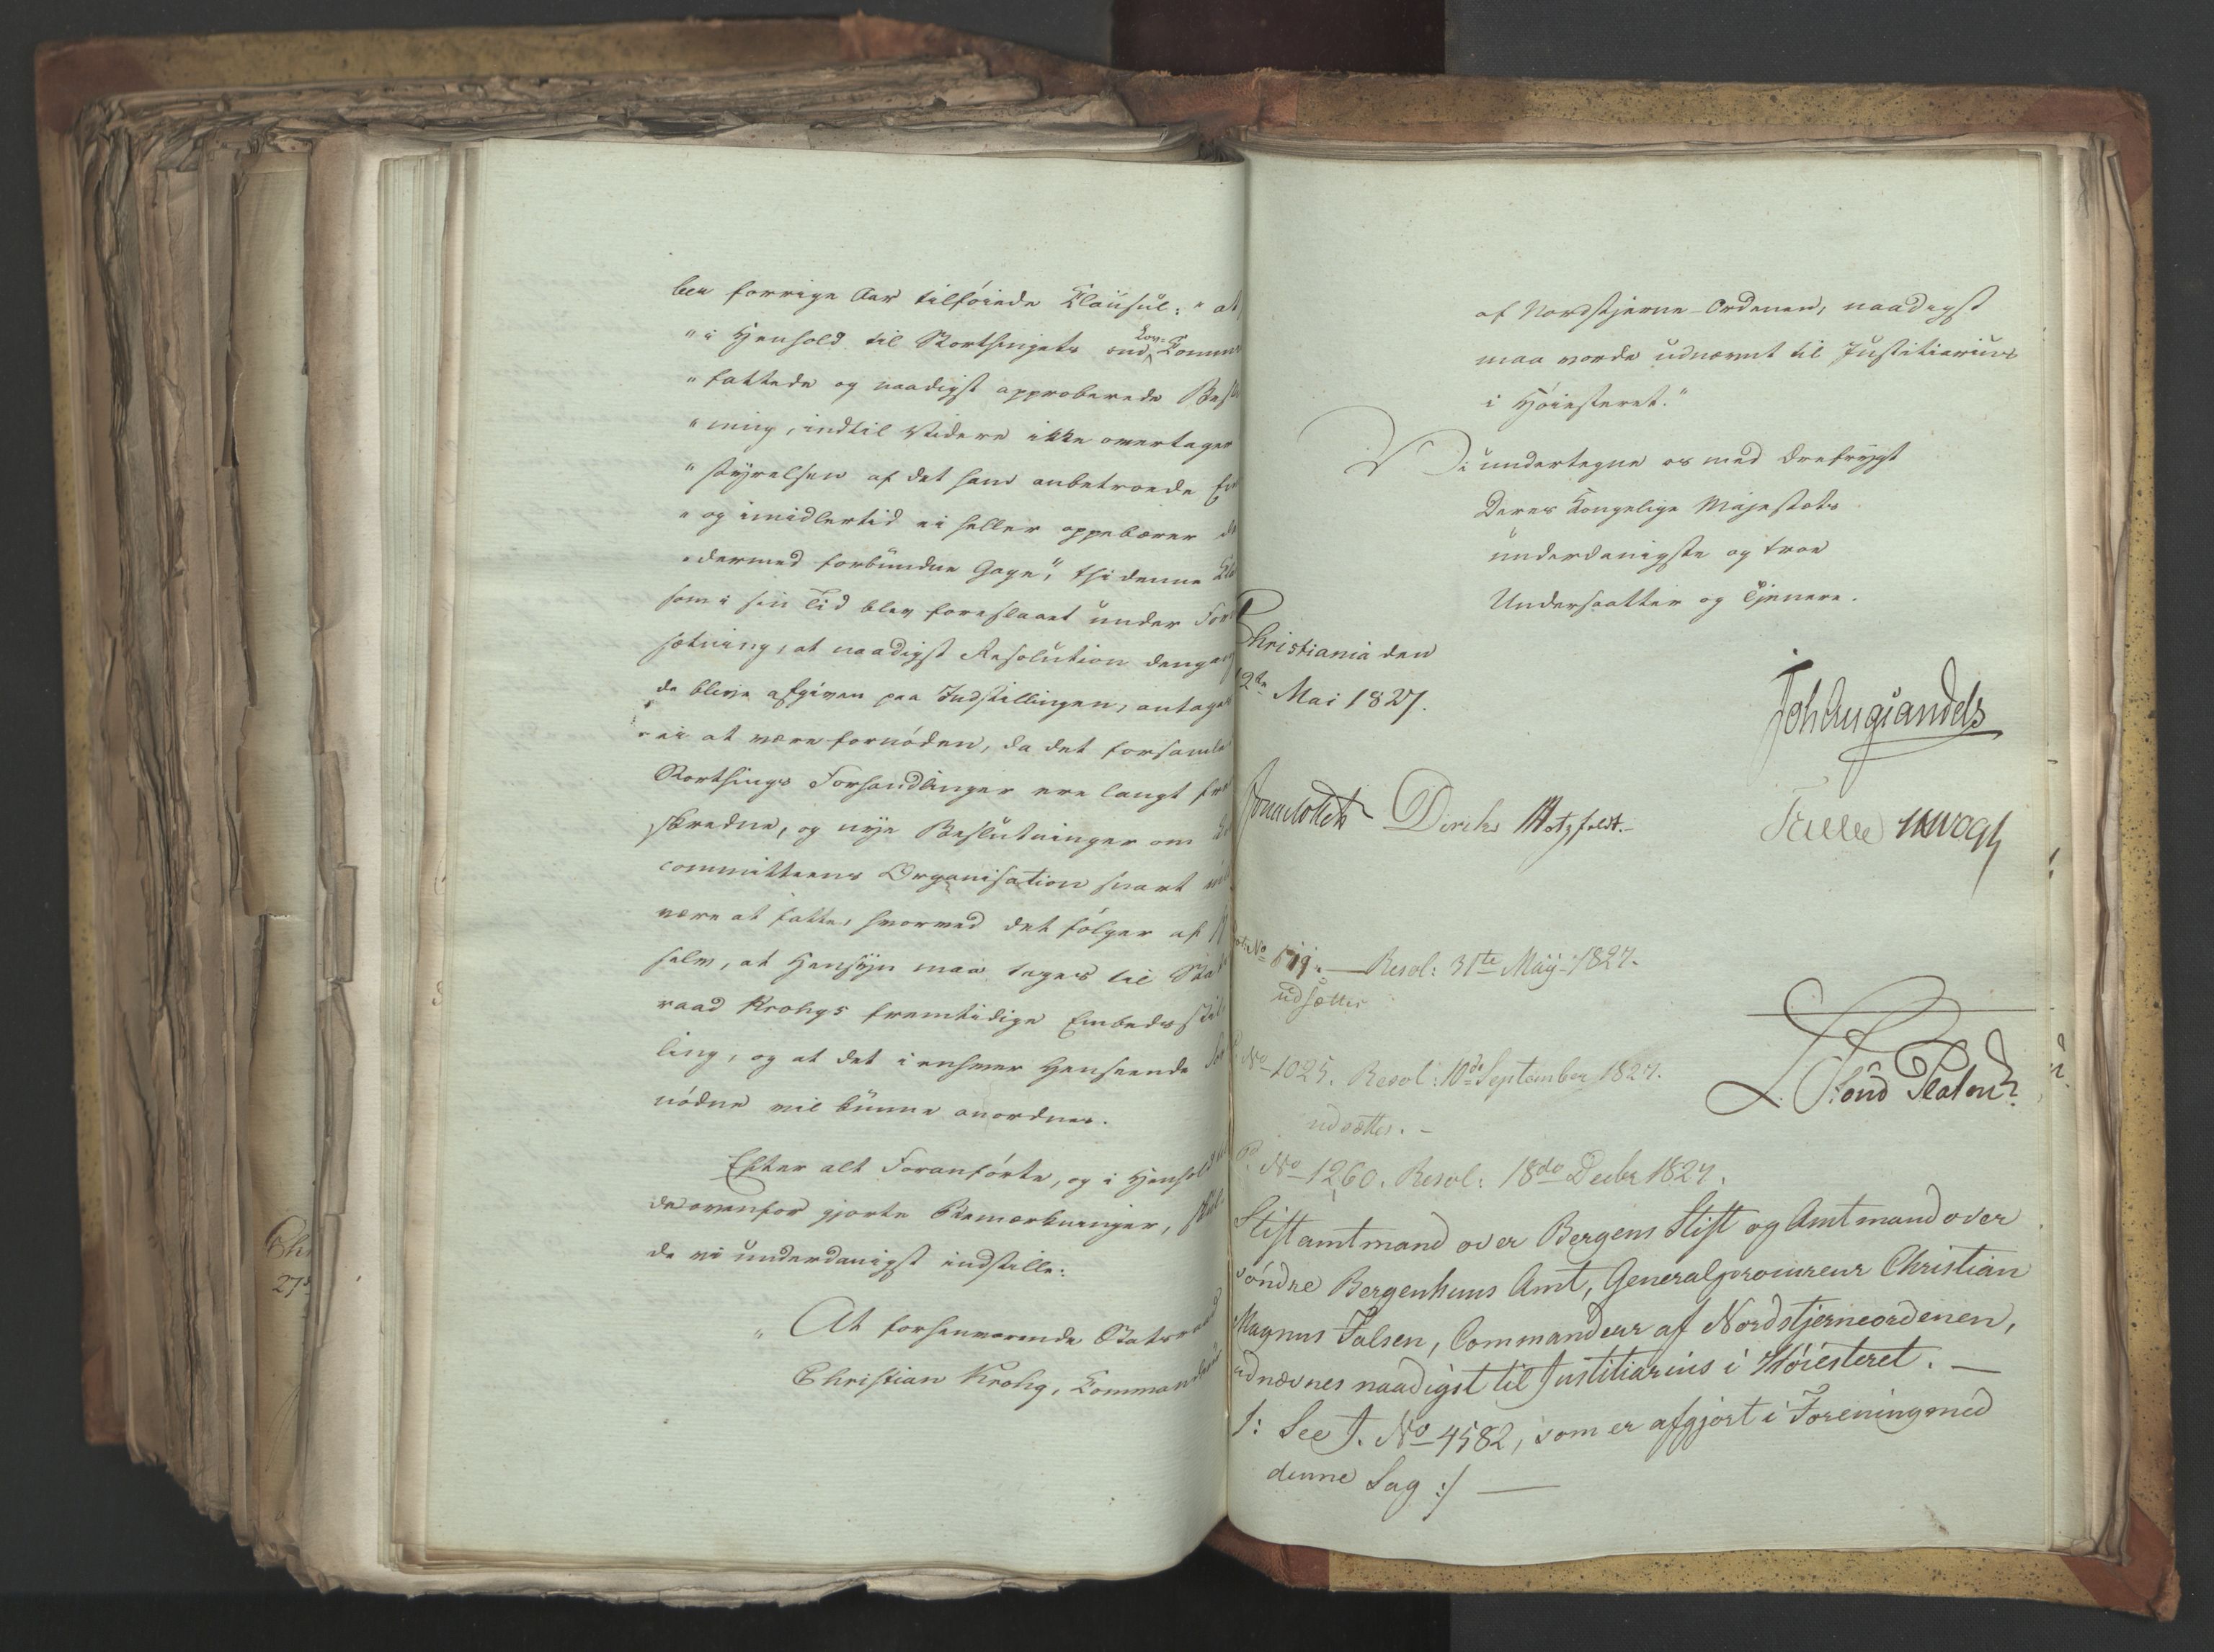 ber forrige Aar tilføiede Clausul: "at
" i Henhold til Storthingets ved Lov-Comm
" fattede og naadigst approberede Besl
" ning, indtil Videre ikke overtager
" styrelsen af det ham anbetroede Em
" og imidlertid ei heller oppebærer de
" dermed forbundne Gage", thi denne Cla
som i sin Tid blev foreslaaet under For
sætning, at naadigst Resolution dengang
de bleve afgiven paa Indstillingen, antages
ei at være fornøden, da det forsamle
Storthings Forhandlinger ere langt frem
skredne, og nye Beslutninger om Lov
committeens Organisation snart vil
være at fatte, hvorved det følger af sig
selv, at Hensyn maa tages til Stats
raad Krohgs fremtidige Embedsstil
ling, og at det i enhver Henseende for
nødne vil kunne anordnes.
Efter alt Foranførte, og i Henhold til
de ovenfor gjorte Bemærkninger, skul
de vi underdanigst indstille:
" At forhenværende Statsraad
Christian Krohg, Commandeur
af Nordstjerne-Ordenen, naadigst
maa vorde udnævnt til Justitiarius
i Høiesteret."
Vi undertegne os med Ærefrygt
Deres Kongelige Majestæts
underdanigste og troe
Undersaatter og Tjenere.
Christiania den
12te Mai 1827.
Joh Aug Sandels
Jonas Collett Diriks Motzfeldt.
Treschow JHVogt
No 519. — Resol: 31te Maÿ 1827.
udsættes
P. No 1025. Resol: 10de September 1827.
udsættes. —
Pd No 1260. Resol: 18de Decbr 1827.
Stiftamtmand over Bergens Stift og Amtmand over
søndre Bergenhuus Amt, Generalprocureur Christian
Magnus Falsen, Commandeur af Nordstjerneordenen,
udnævnes naadigst til Justitiarius i Høiesteret. —
/: See J. No 4582, som er afgjort i Forening med
denne Sag :/ —